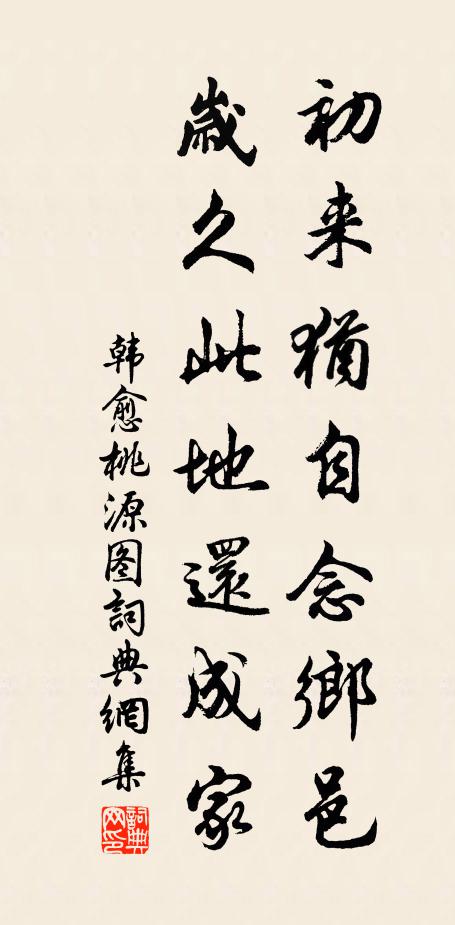 初来猶自念鄉邑
歲久此地還成家
韩愈桃源图詞典網集
詞典
网印